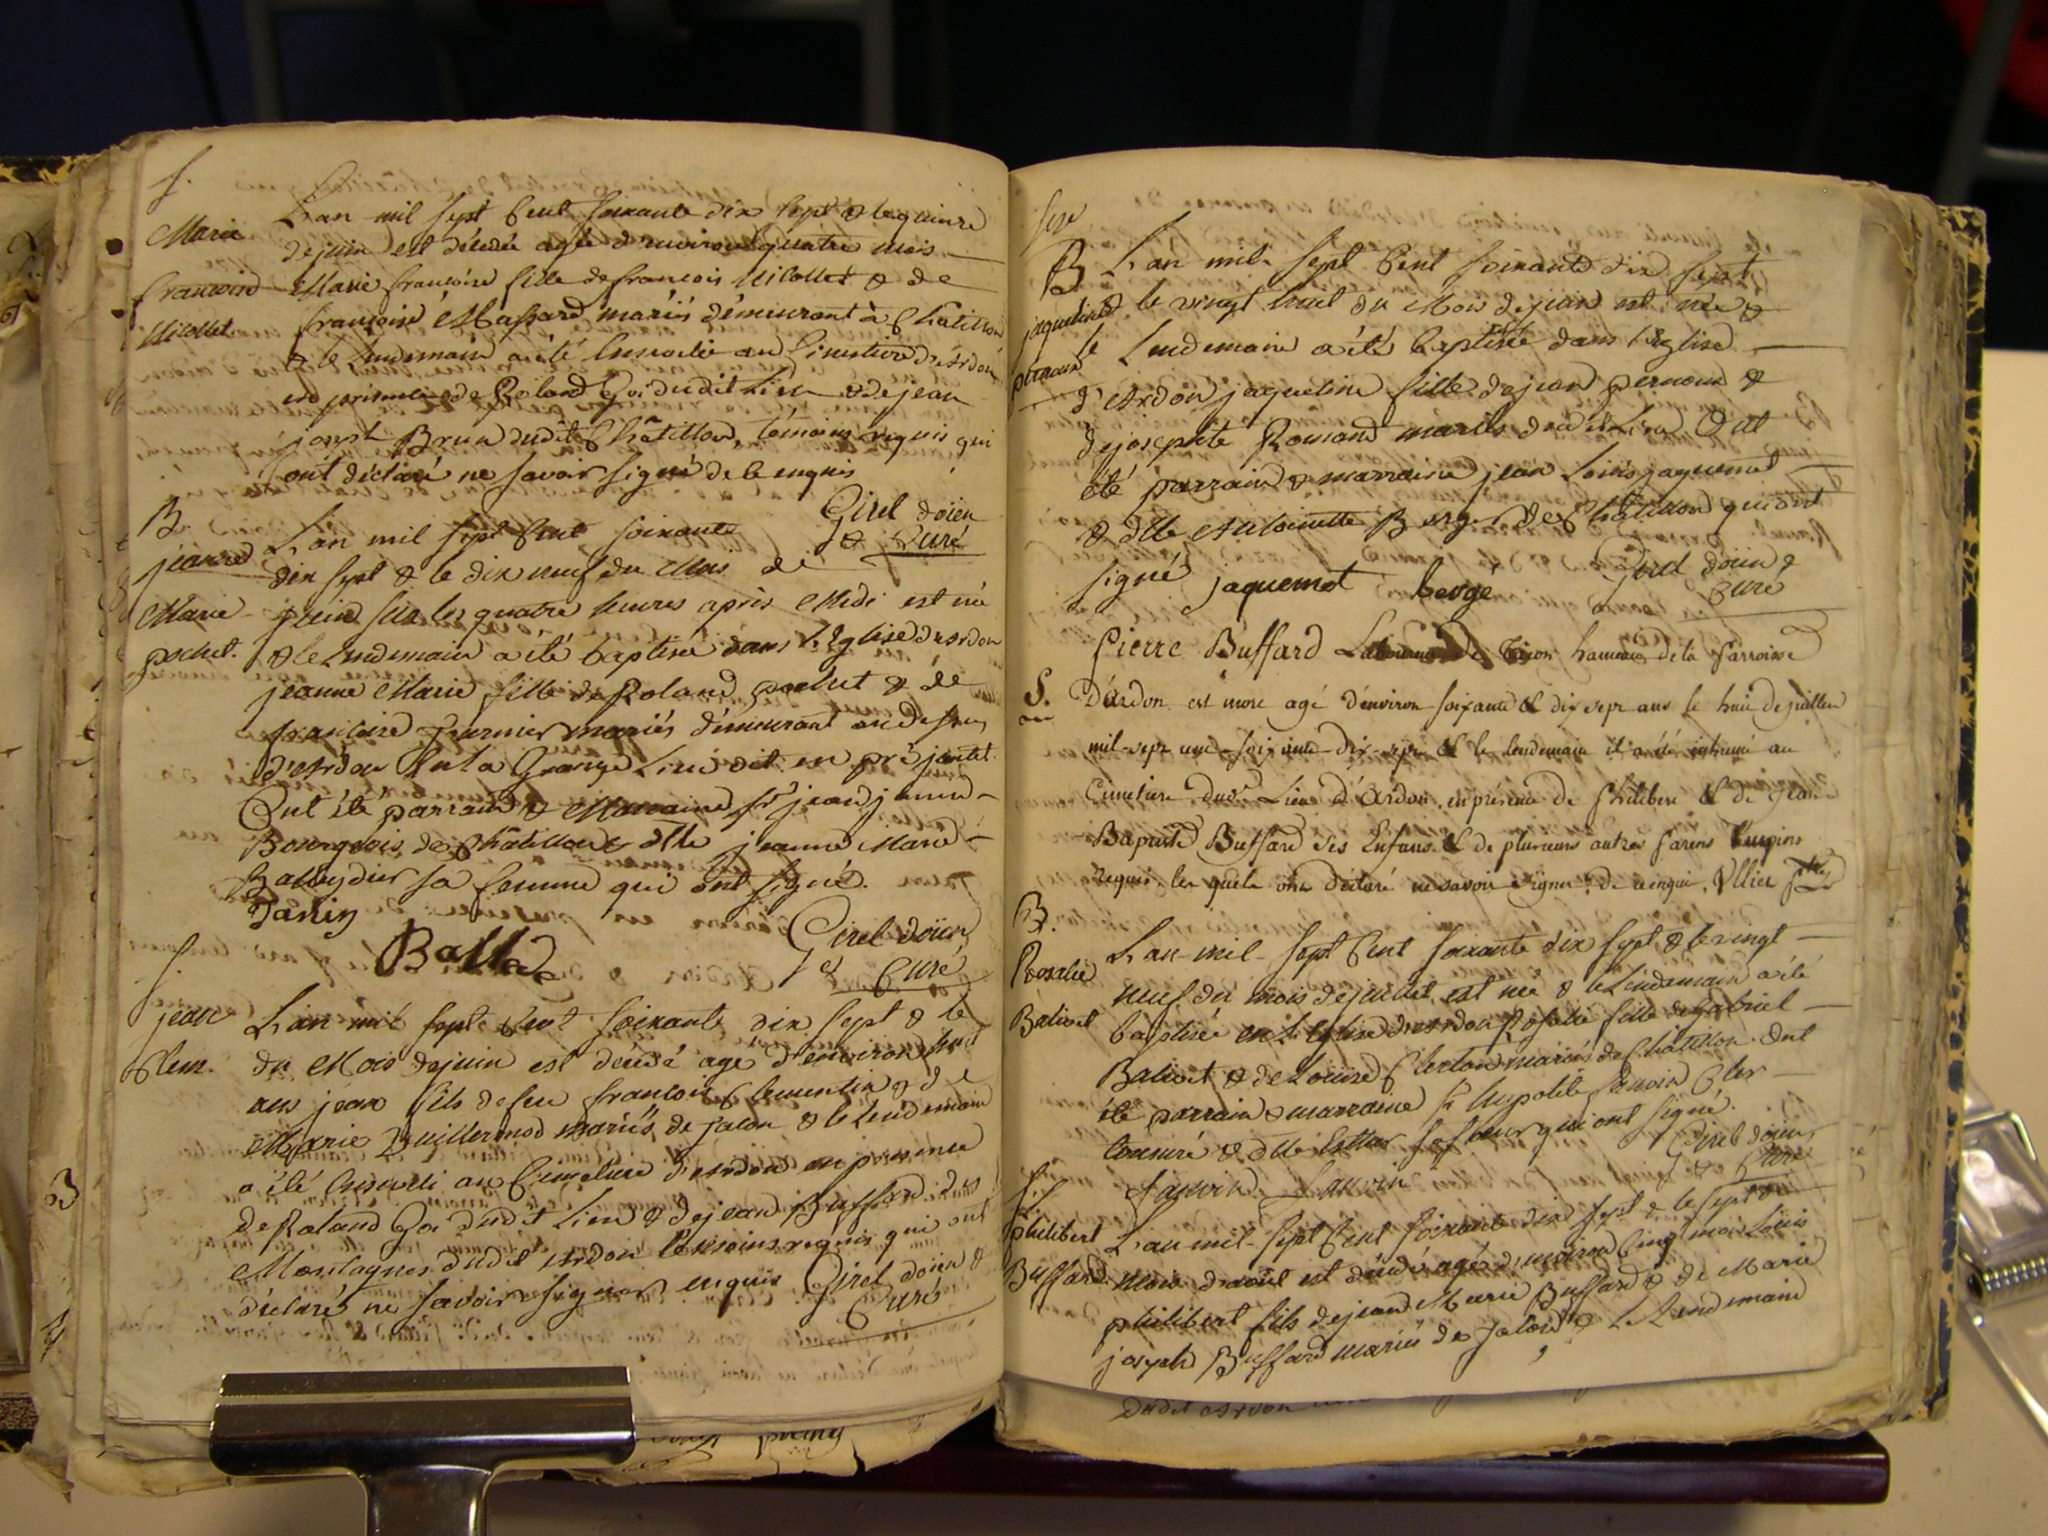 S.
Marie
francoise
Nicollet
L'an mil sept Cent soixante dix sept & le quinze
de juin est décédée agée d'environ quatre mois
Marie francoise fille de francois Nicollet & de
françoise Massard mariés démeurant à Chatillon
& le Lendemain a été Ensevelie au Cimetiere d'Ardon
en présence de Roland Goi dudit Lieu & de jean
joseph Brun dudit Châtillon, témoins requis qui
ont déclaré ne savoir signé de ce enquis
Girel doïen
& Curé
B
jeanne
Marie
pochet.
L'an mil sept Cent soixante
dix sept & le dix neuf du Mois de
juin sur les quatre heures après Midi est née
& le Lendemain a été baptisée dans l'Eglise d'Ardon
jeanne Marie fille de Roland pochet & de
francoise fournier mariés démeurant au dessus
d'Ardon En la Grange Lieu dit en pré
Ont été parrain & Marraine sr jean
Bourgeois de Châtillon & dlle jeanne Marie
Balleydier sa femme qui ont signé.
Janin
Ball
Girel doïen
& Curé
S.
jean
Clem.
L'an mil sept Cent soixante dix sept & le
du Mois de juin est décédé agé d'environ huit
ans jean fils de feu francois Clementin & de
Marie Guillermod mariés de jalon & le Lendemain
a été Enseveli au Cimetiere d'Ardon en présence
de Roland Goi dudit Lieu & de jean Buffard des
Montagnes dudit Ardon témoins requis qui ont
déclaré ne savoir signer enquis Girel doïen &
Curé
B
jaqueline
pernoux
L'an mil sept Cent soixante dix sept
le vingt huit du Mois de juin est née &
le Lendemain a été baptisée dans l'Eglise
d'Ardon jaqueline fille de jean pernoux &
de josephte Romand mariés dudit Lieu Ont
été parrain & marraine jean Louis jaquemet
& dlle Antoinette Berge de Châtillon qui ont
signé
jaquemet berge
Girel doïen &
Curé
S.
Pierre Buffard Laboureur de hameau de la Parroisse
D'ardon est mort agé d'environ soixante & dix sept ans le huit de juillet
mil-sept cent-soixante-dix-sept & le lendemain il a été inhumé au
Cimetiere dud. Lieu d'Ardon, en présence de Philibert & de Jean
Baptiste Buffard ses Enfans & de plusieurs autres Parens témoins
requis, lesquels ont déclaré ne savoir signer, de ce enquis, Ullier
B.
Rosalie
Balivet
L'an mil sept Cent soixante dix sept & le vingt
neuf du mois de juillet est née & le Lendemain a été
baptisée en l'Eglise d'Ardon Rosalie fille de Gabriel
Balivet & de Louise mariés de Châtillon Ont
été parrain & marraine sr hypolite Janvoin Cler
tonsuré & dlle Esther sa soeur qui ont signé.
Girel doïen
& Curé
S.
philibert
Buffard
L'an mil sept Cent soixante dix sept & le sept du
mois d'août est décédé agé d'environ Cinq mois Louis
philibert fils de jean Marie Buffard & de Marie
joseph Buffard mariés de jalon & le Lendemain
dudit Ardon